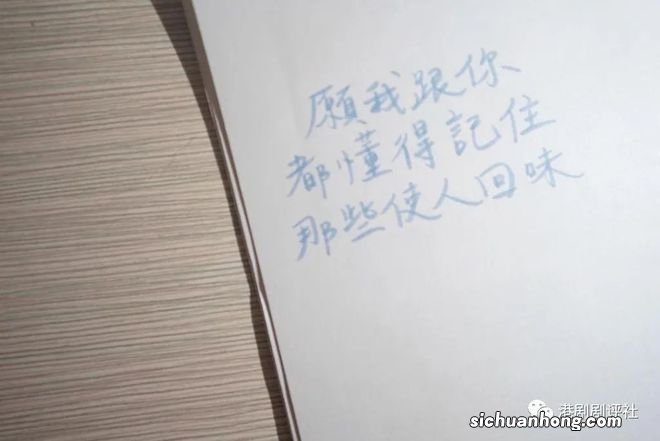 願我跟你
都懂得記住
那些使人回味
港剧剧评社
sichuanhong.com